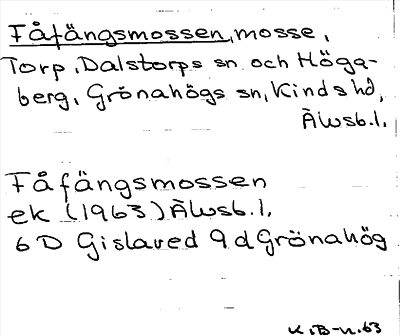 Fåfängsmossen, mosse,
Torp, Dalstorps sn och Höga-
berg, Grönahögs sn, Kinds hd,
Älvsb.l.
Fåfängsmossen
ek (1963) Älvsb.l.
6D Gislaved 9d Grönahög
K.B-n.63